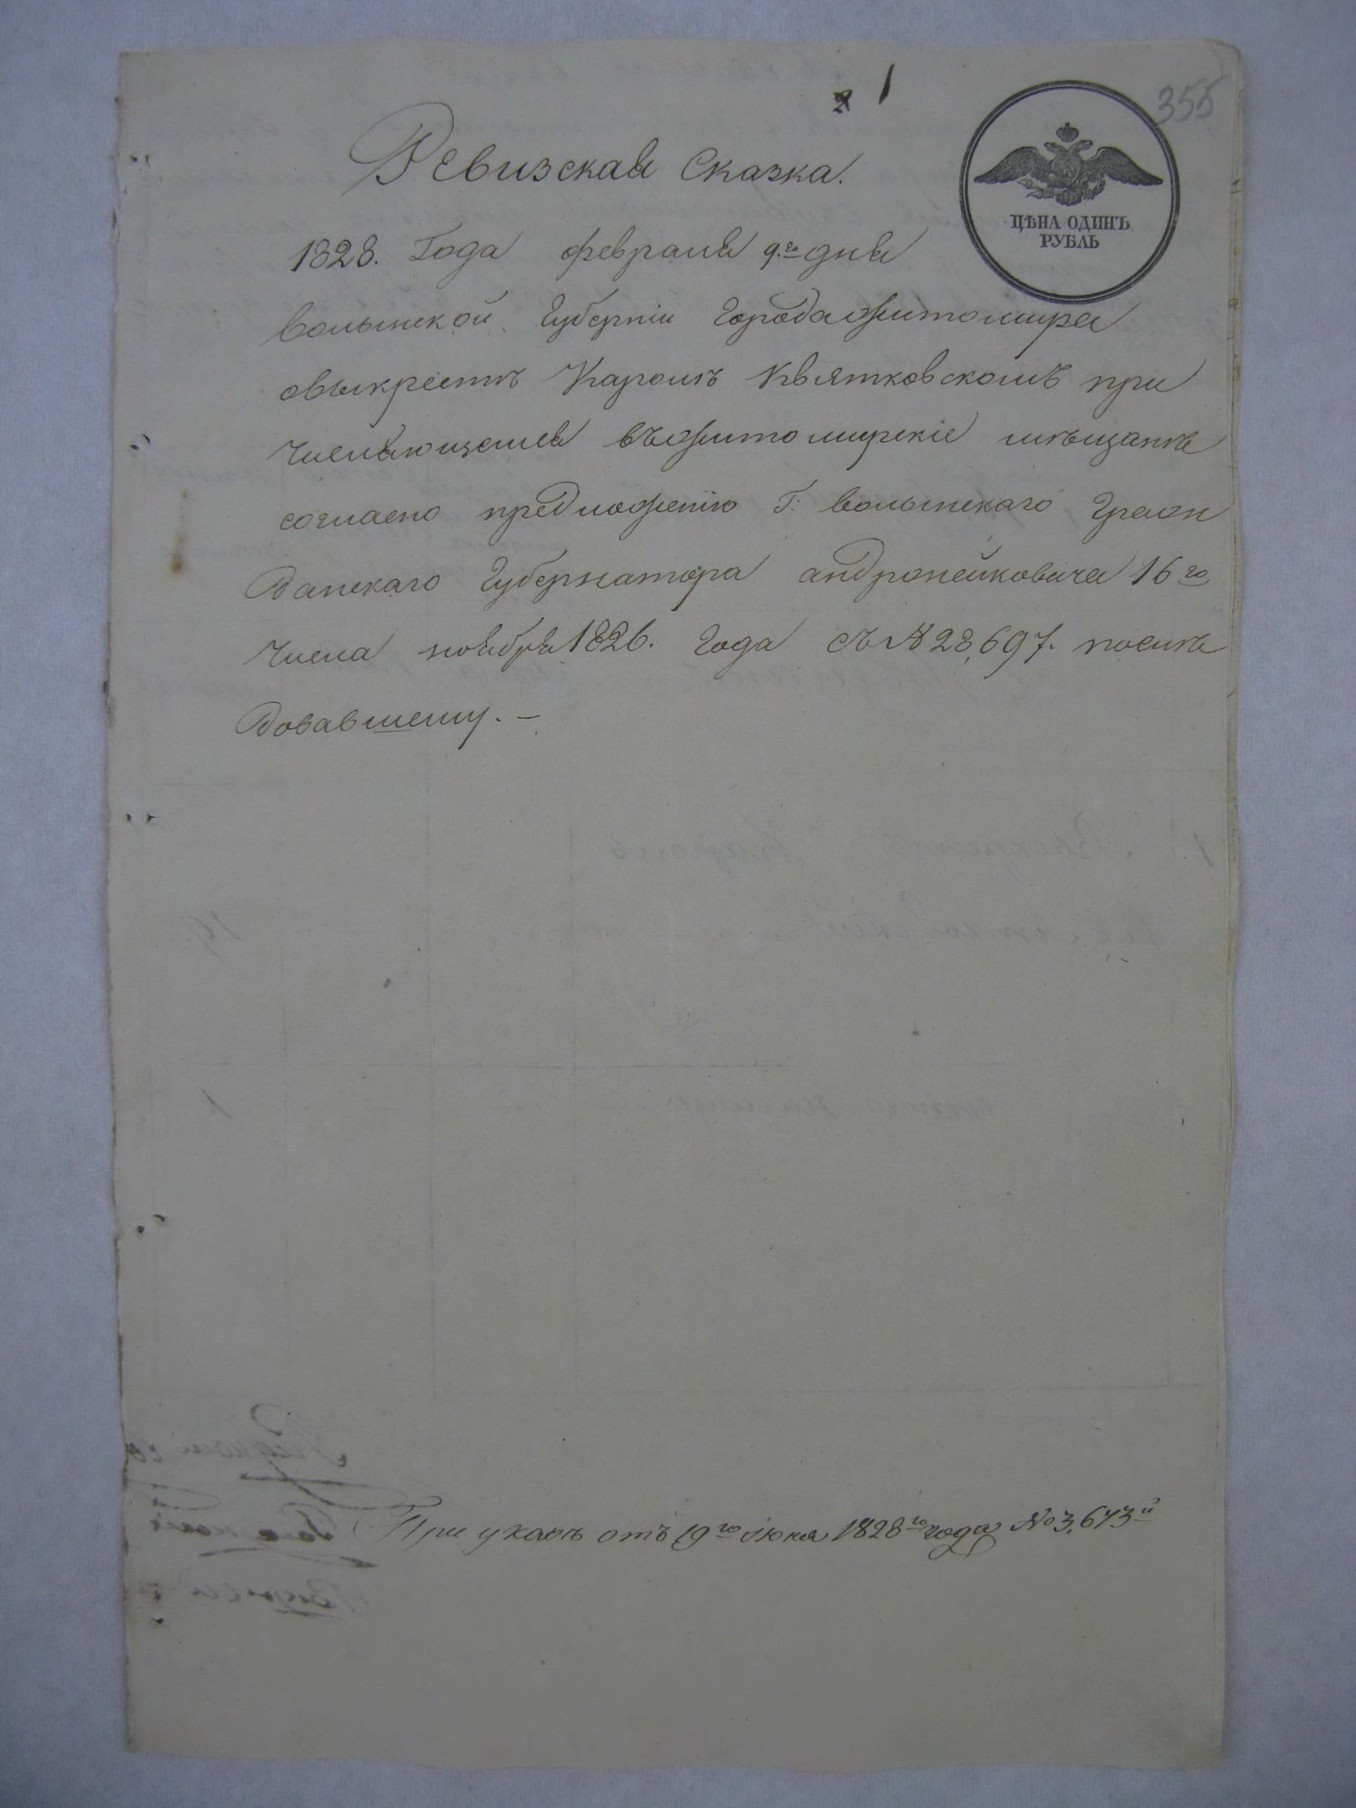 2 1
355
ЦѢНА ОДИНЪ
РУБЛЬ
Ревизская Сказка.
1828. Года февраля 9.го дня
волынской Губерніи Города житомира
овыкрестѣ Каролѣ Квятковскомъ при
числяющемся въжитомирскіе мѣщане
согласно предложенію Г: волынскаго Граж
данскаго Губернатора андржейковича 16го
числа ноября 1826. Года съ № 28,697. послѣ
довавшему. –
При указѣ отъ 19го іюня 1828го года No 3,673й